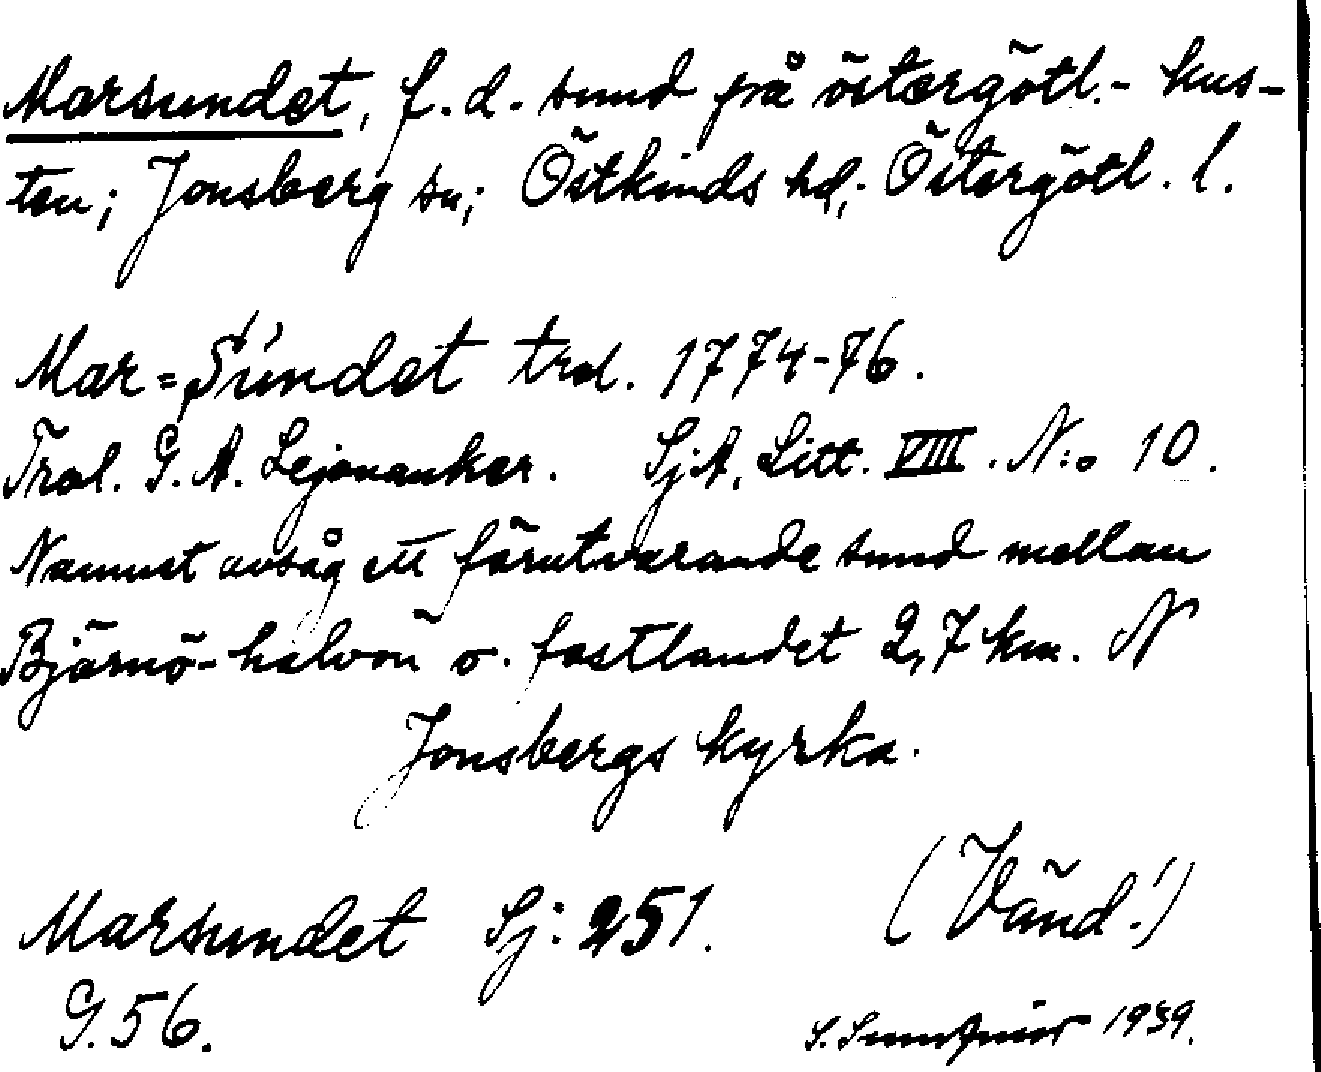 Marsundet, f.d. sund på östergötl.- kus-
ten; Jonsberg sn; Östkinds hd; Östergötl. l.
Mar=Sundet trol. 1774-76.
Trol. G. A. Lejonanker. SjA, Litt. VIII. N:o 10.
Namnet avsåg ett förutvarande sund mellan
Björnö-halvön o. fastlandet 2,7 km. N
Jonsbergs kyrka.
(Vänd!)
Marsundet Sj: 251.
G. 56.
1939.